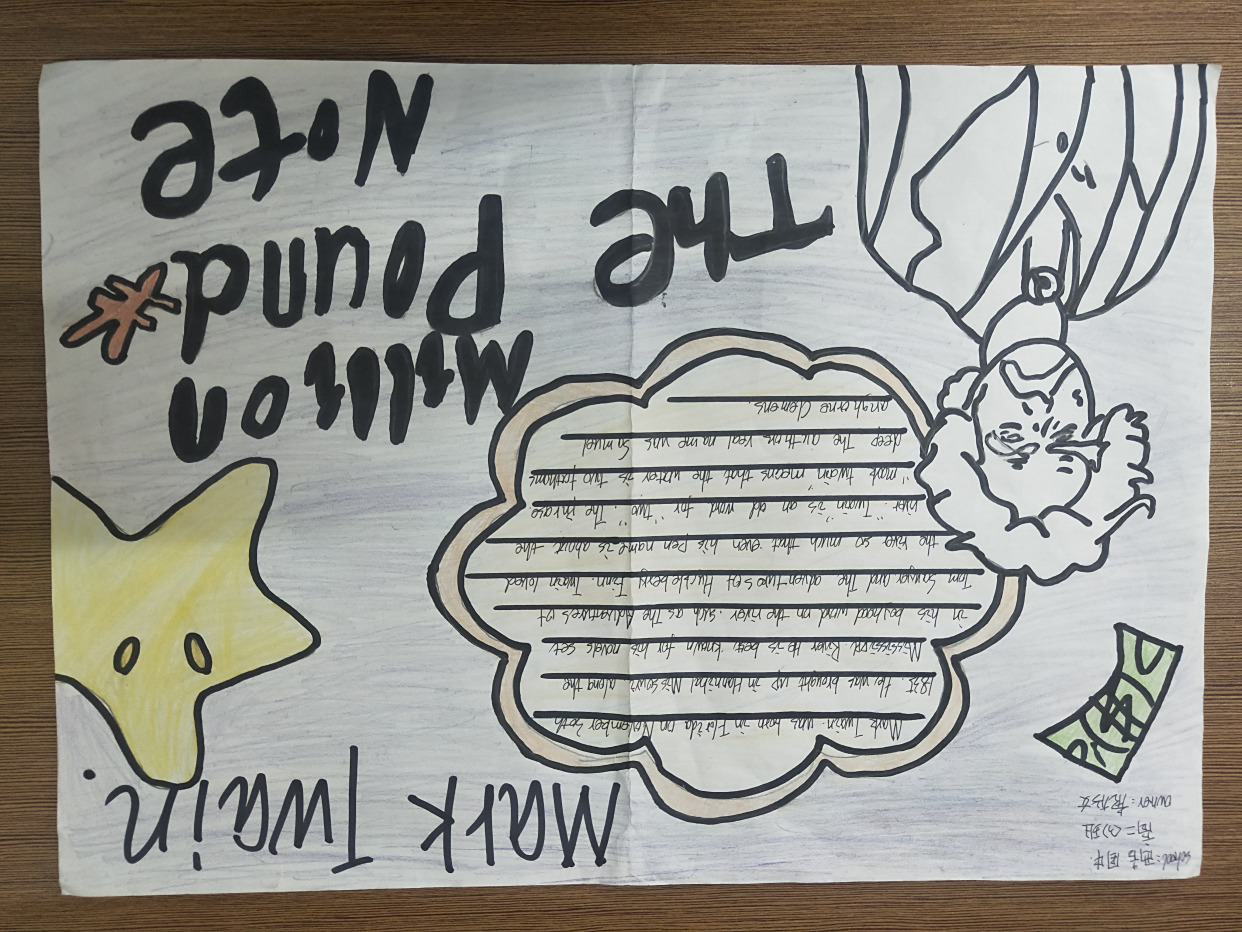 school:西吉回中.
高二 班
author:
Mark Twain.
Mark Twain was born in Florida on November 30th
1835 He was brought up in Hannibal Missouri along the
Mississippi River He is best known for his novels set
in his boyhood world on the river. such as The Adventures of
Tom Sawyer and The adventures of Huckleberry Finn. Twain loved
the rive so much that even his pen name is about the
river. "Twain" is an old word for "two". The phrase
"mark twain" means that the water is two fathoms
deep The authors real name was Samuel
anghorne Clemens.
The
Million
Pound
Note